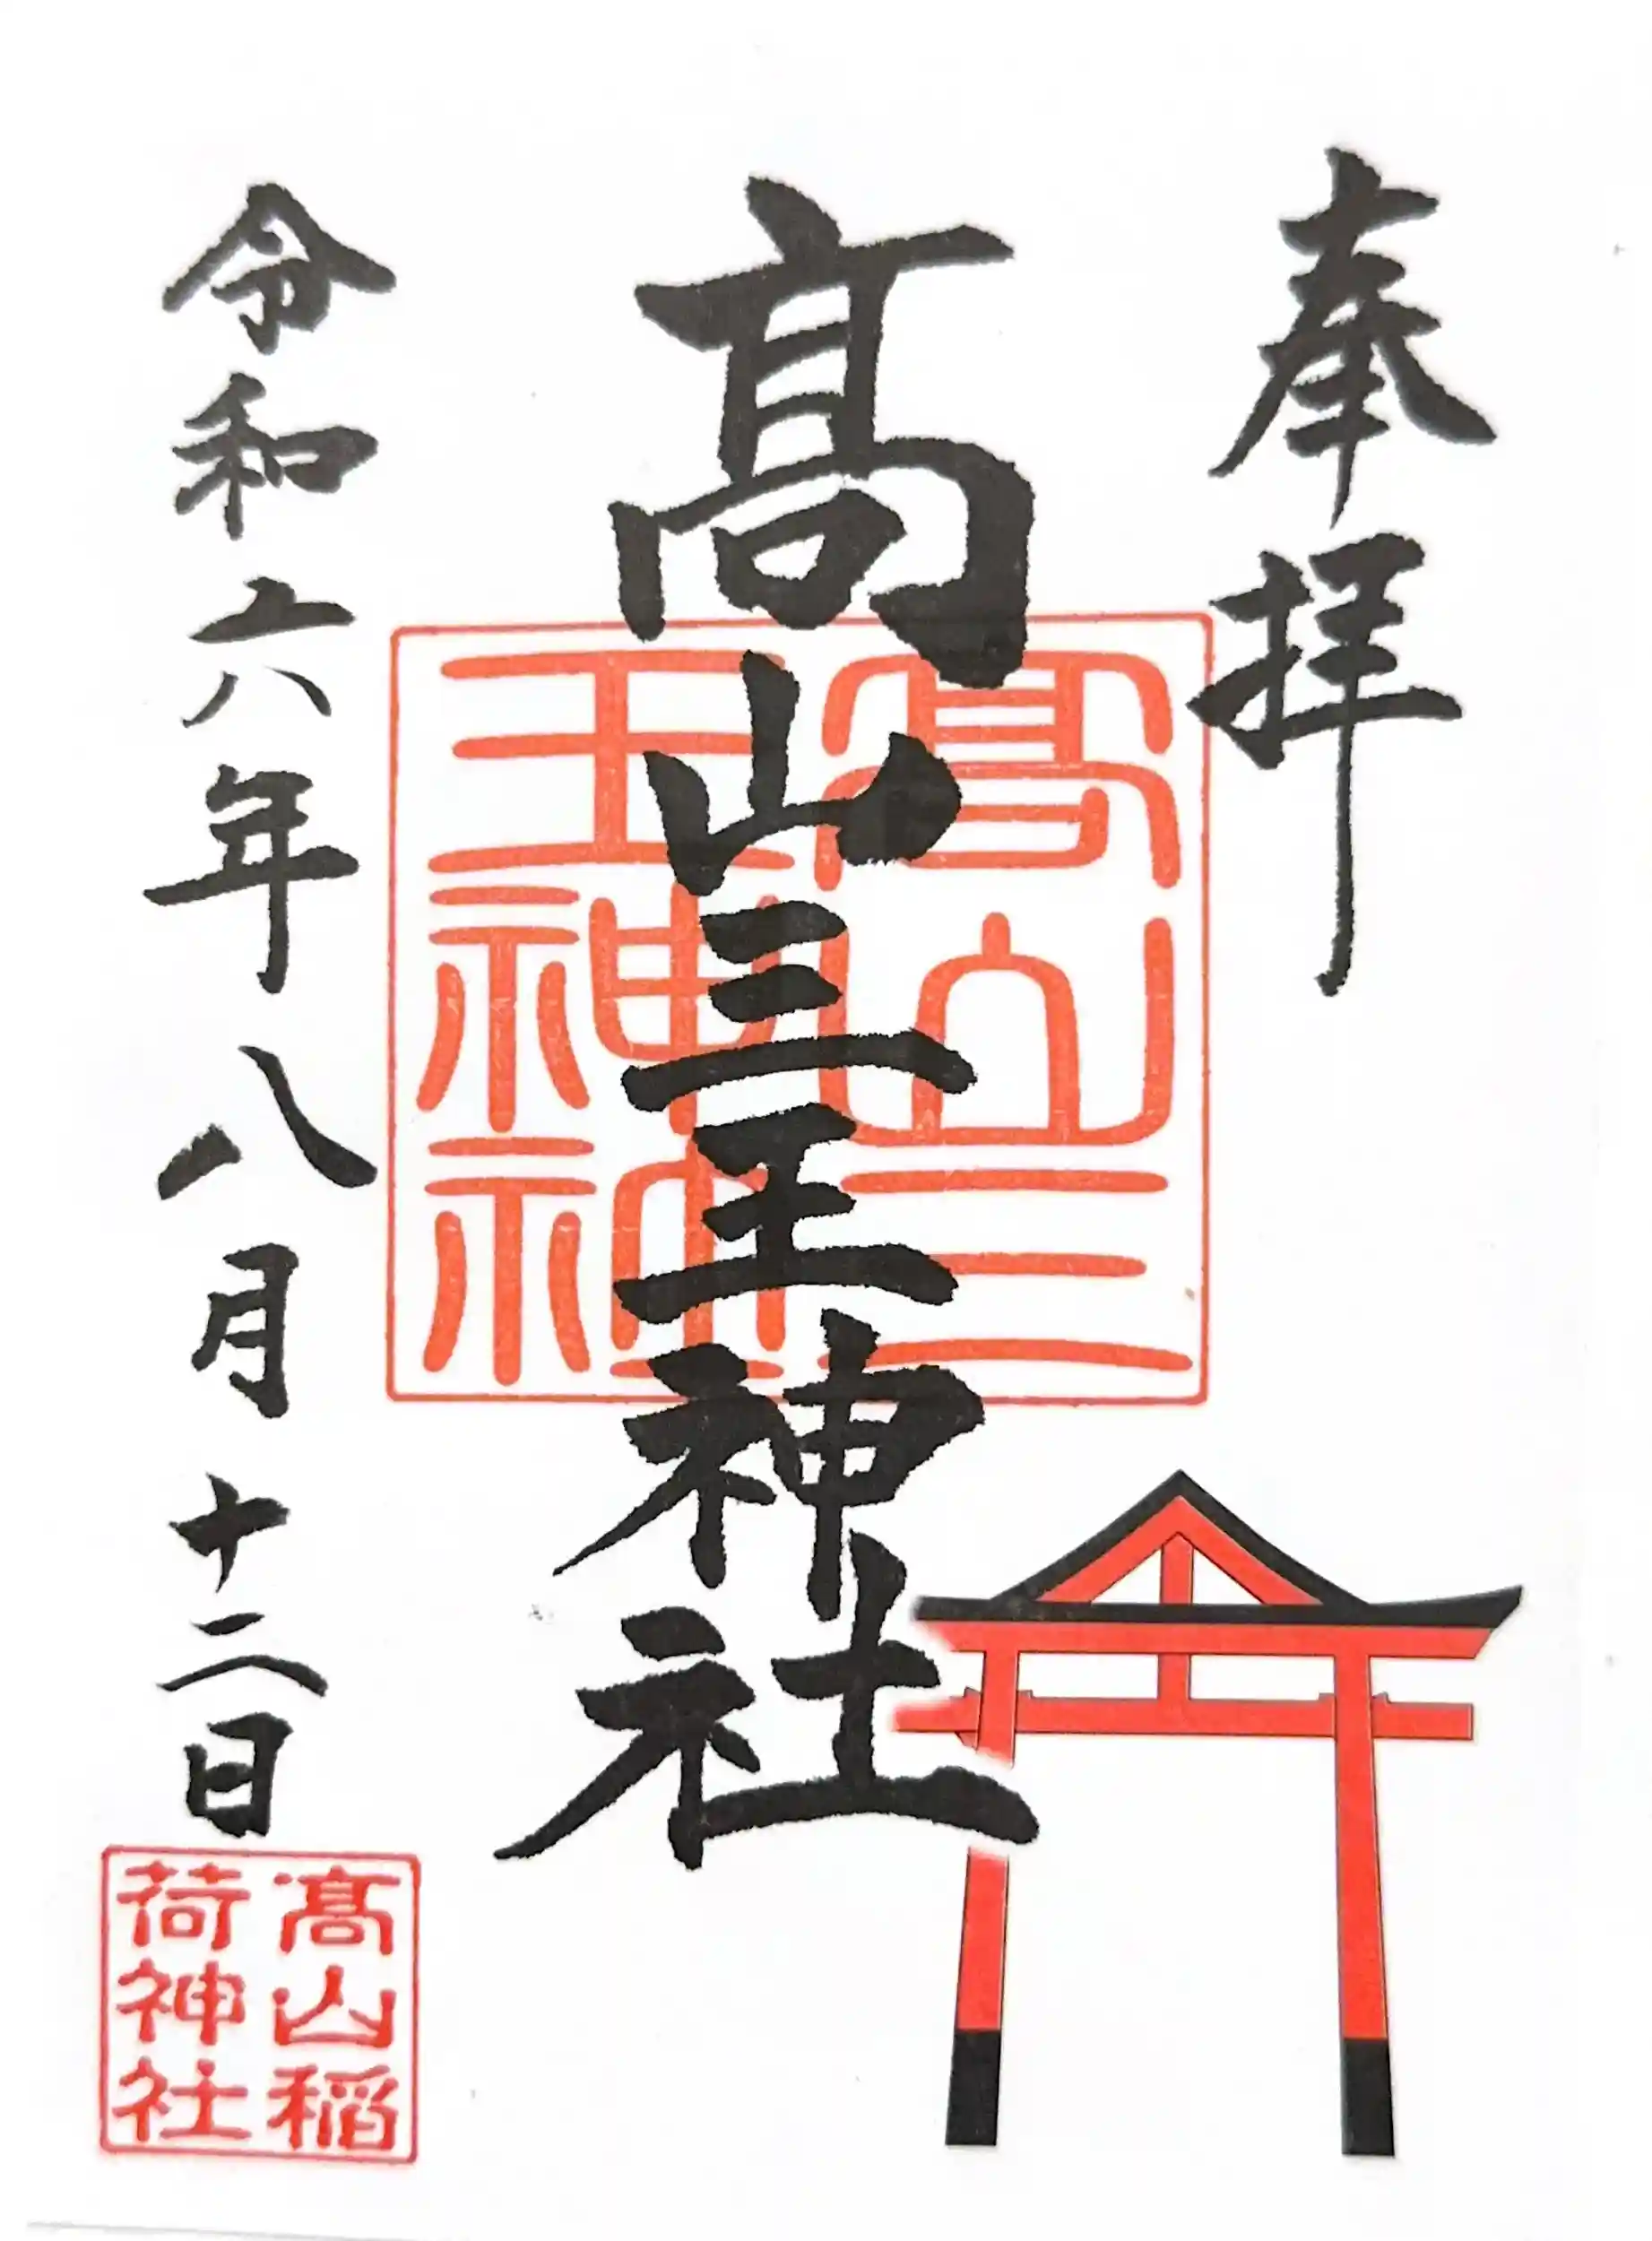 奉拝
髙山三王神社
髙山三
王神社
令和六年八月十二日
髙山稲
荷神社